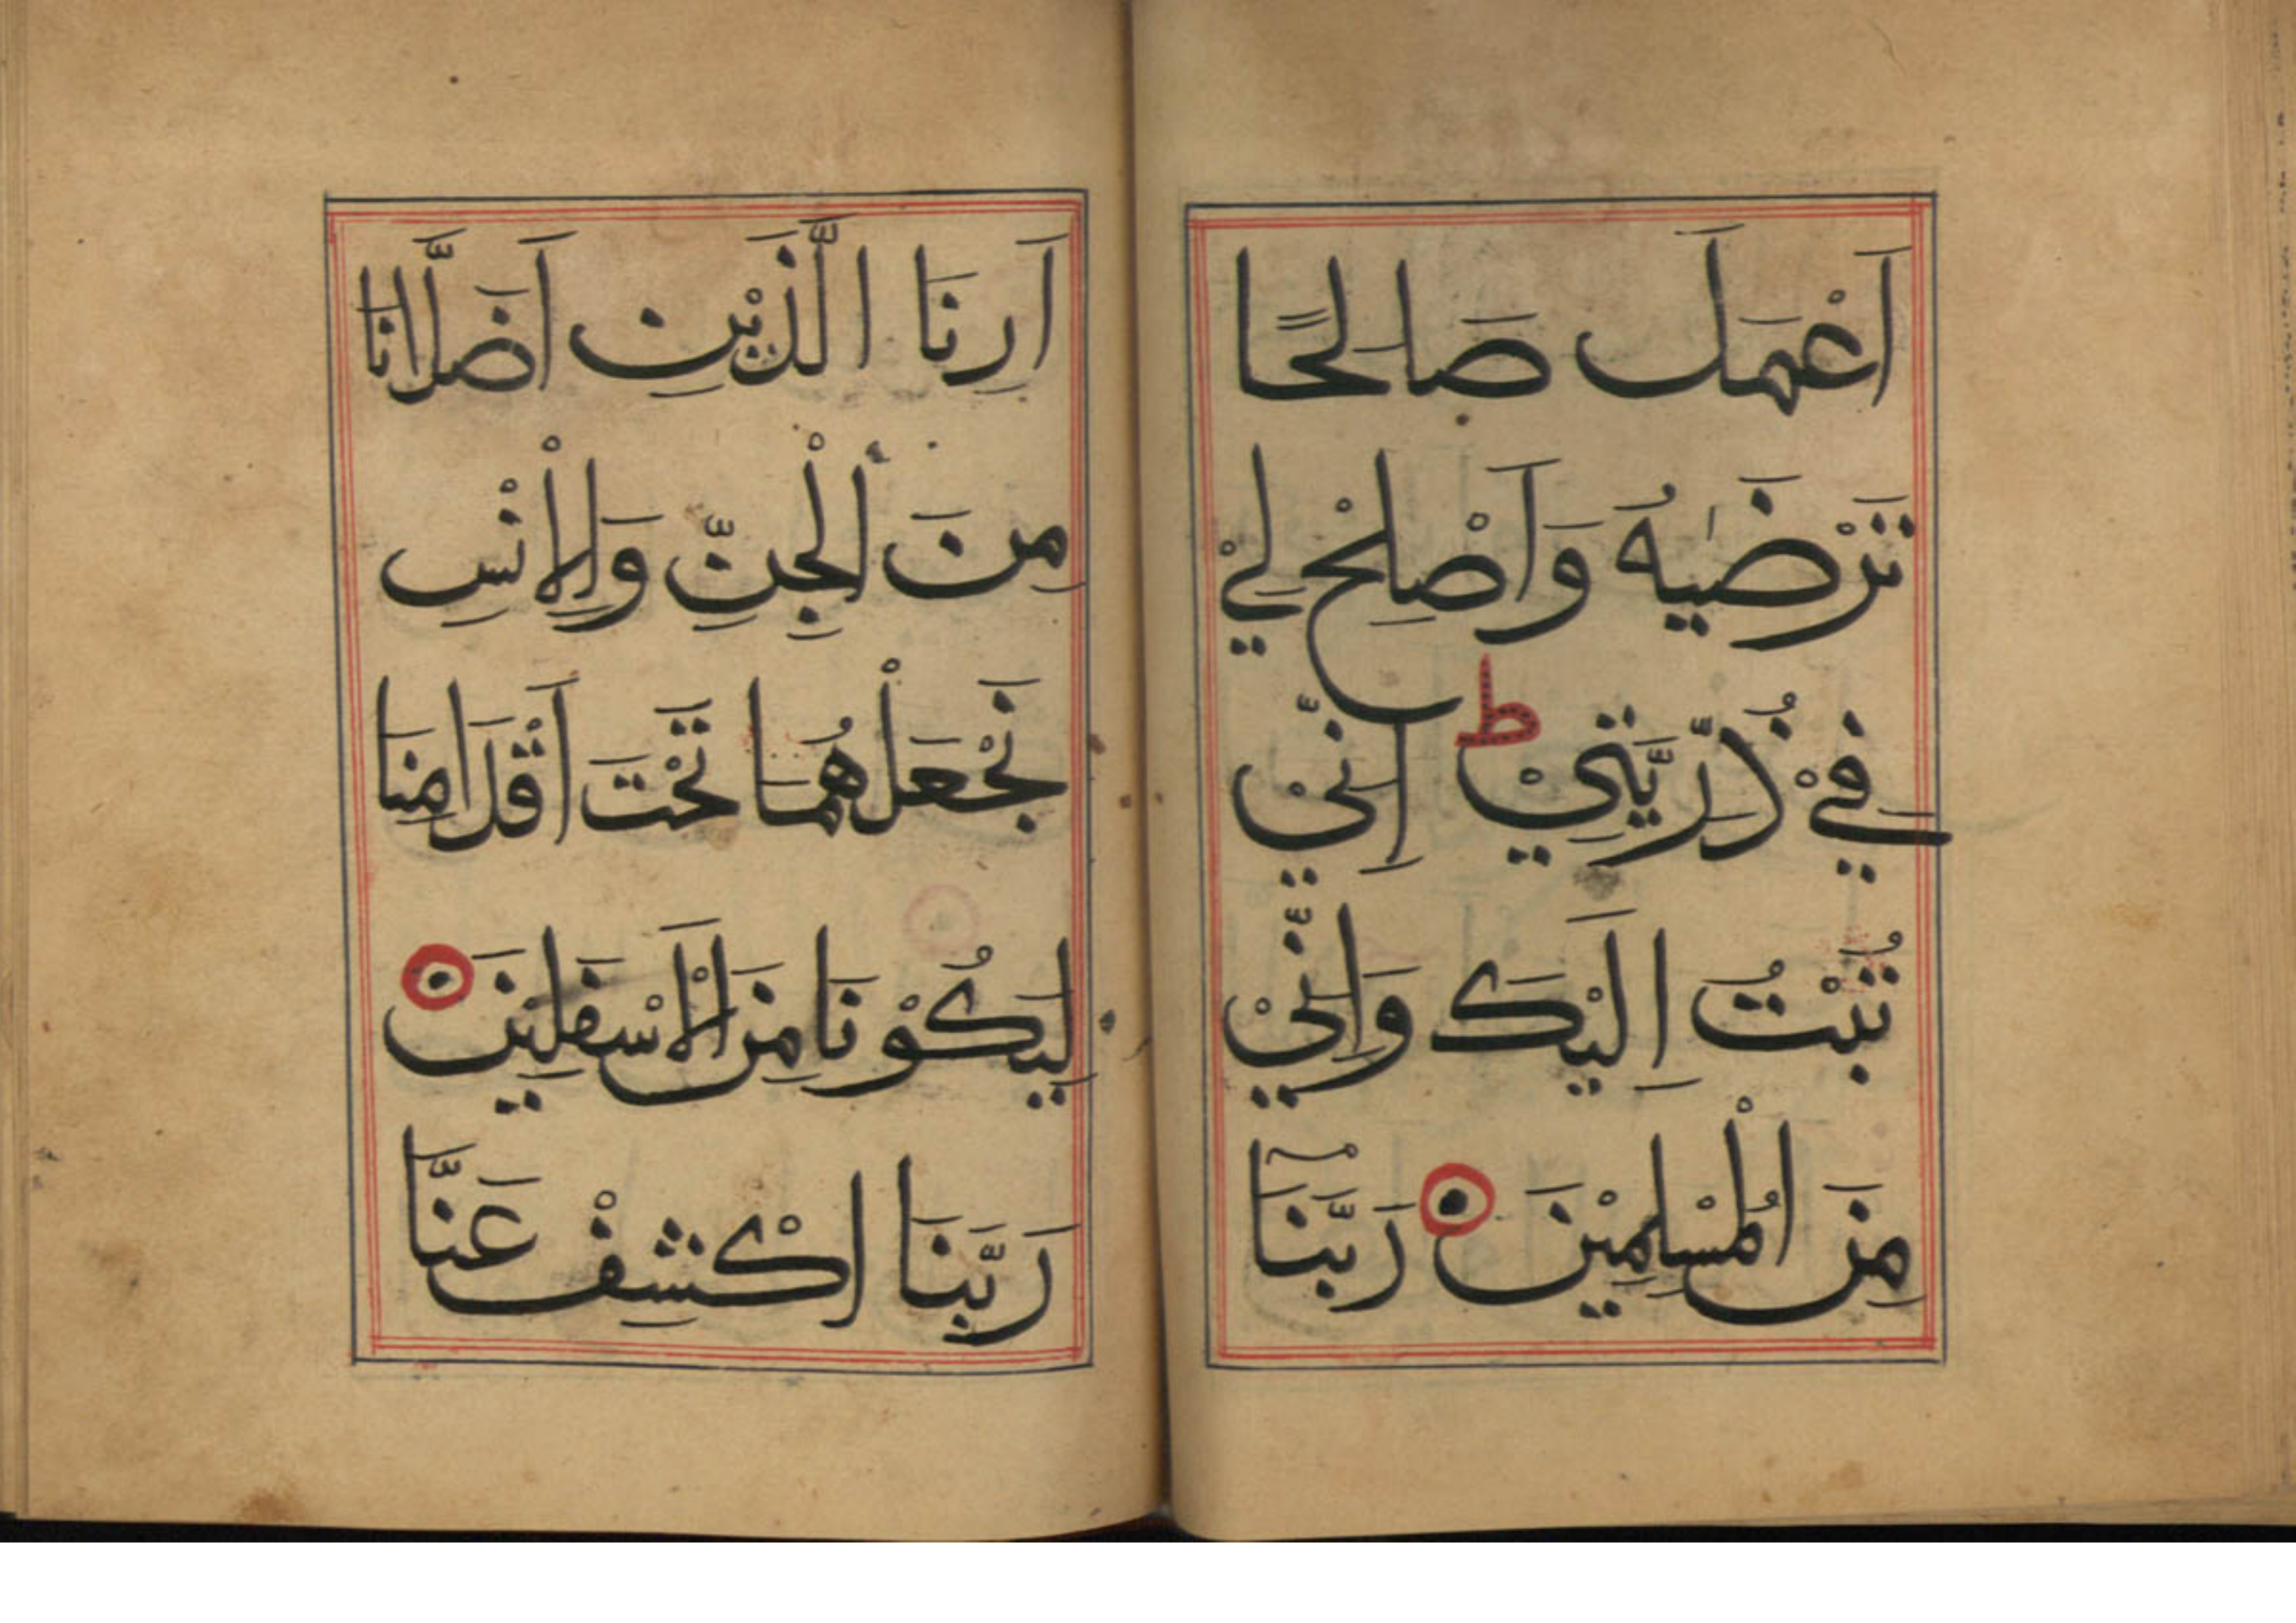 اَعْمَلَ صَالِحًا
تَرْضٰيهُ وَاَصْلِحْ لِيْ
فِيْ ذُرِّيَّتِيْ ط اِنِّيْ
تُبْتُ اِلَيْكَ وَاِنِّيْ
مِنَ الْمُسْلِمِيْنَ رَبَّنَآ
اَرِنَا الَّذَيْنِ اَضَلَّانَا
مِنَ الْجِنِّ وَالْاِنْسِ
نَجْعَلْهُمَا تَحْتَ اَقْدَامِنَا
لِيَكُوْنَا مِنَ الْاَسْفَلِيْنَ
رَبَّنَا اكْشِفْ عَنَّا